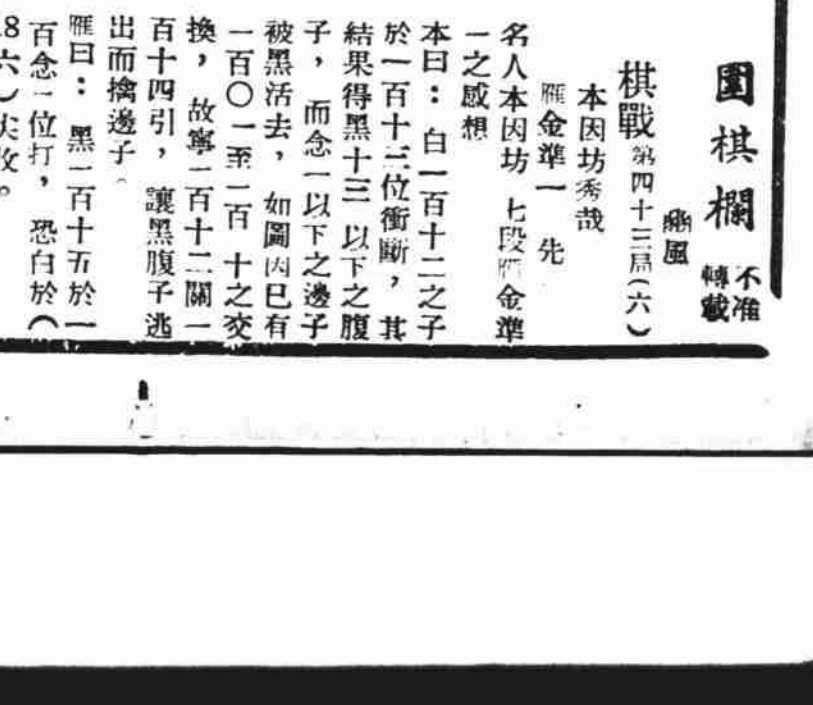 圍棋欄
不准
轉載
棋戰 第四十三局(六)
本因坊秀哉
雁金準一 先
名人本因坊 七段雁金準
一之感想
本曰：白一百十二之子
於一百十三位衝斷，其
結果得黑十三 以下之腹
子，而念一以下之邊子
被黑活去，如圖因已有
一百〇一至一百 十之交
換，故寧一百十二關一
百十四引，讓黑腹子逃
出而擒邊子。
雁曰：黑一百十五於一
百念一位打，恐白於（
18六）尖收。